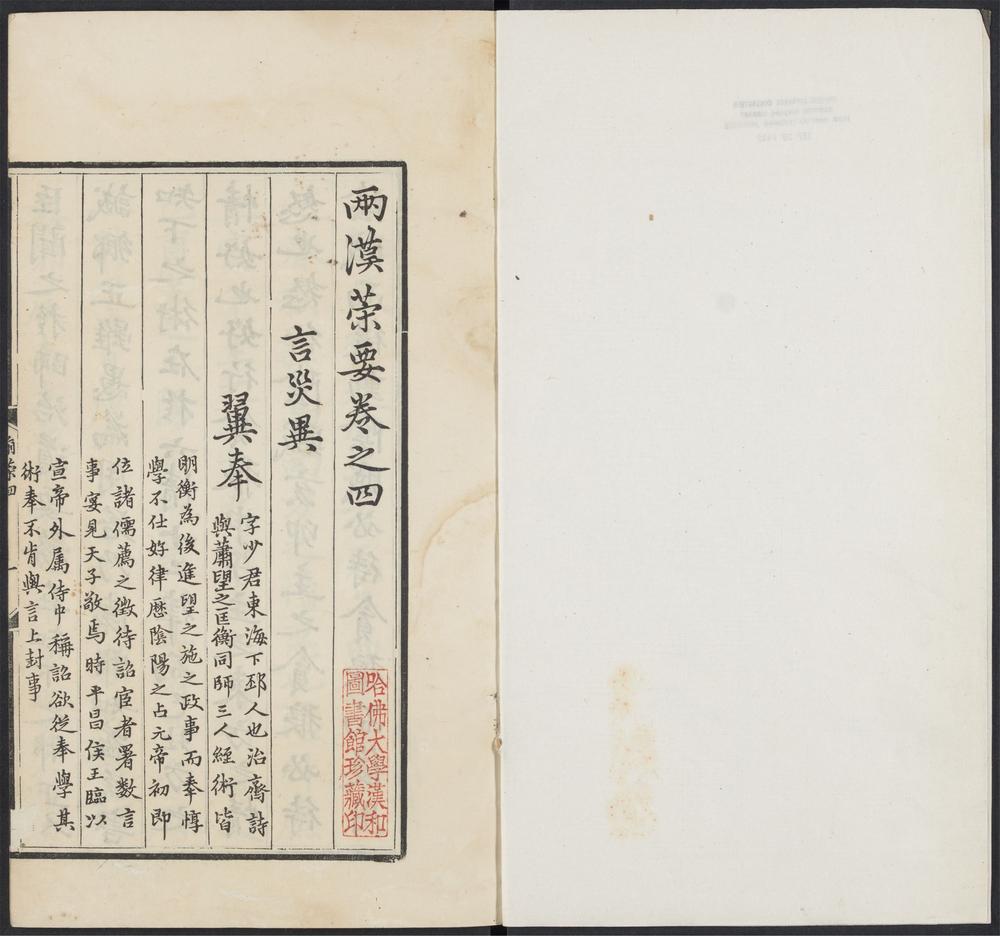 兩漢䇿要卷之四
言災異
翼奉
字少君東海下邳人也治齊詩
與蕭望之匡衡同師三人經術皆
明衡為後進望之施之政事而奉惇
學不仕好律歷陰陽之占元帝初即
位諸儒薦之徵待詔宦者署数言
事宴見天子敬焉時平昌侯王臨以
宣帝外属侍中稱詔欲從奉學其
術奉不肯與言上封事
哈佛大學漢和
圖書館珍藏印